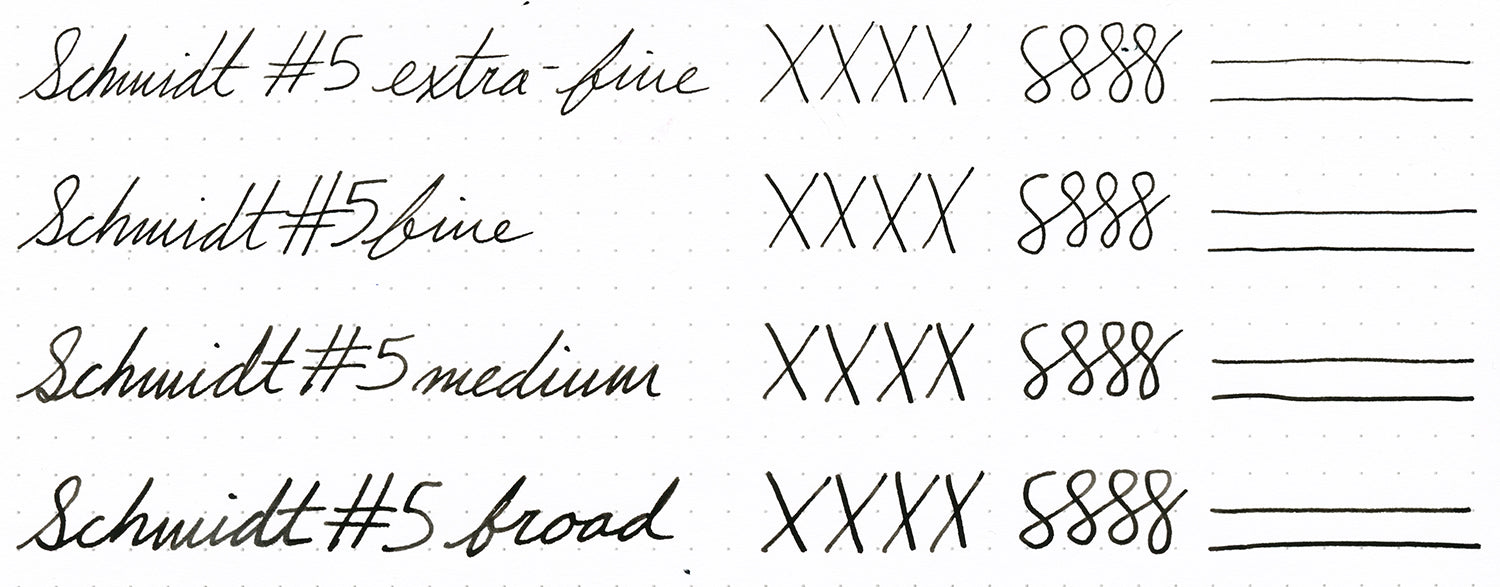 Schmidt #5 extra-fine XXXX 8888
Schmidt #5 fine XXXX 8888
Schmidt #5 medium XXXX 8888
Schmidt #5 broad XXXX 8888